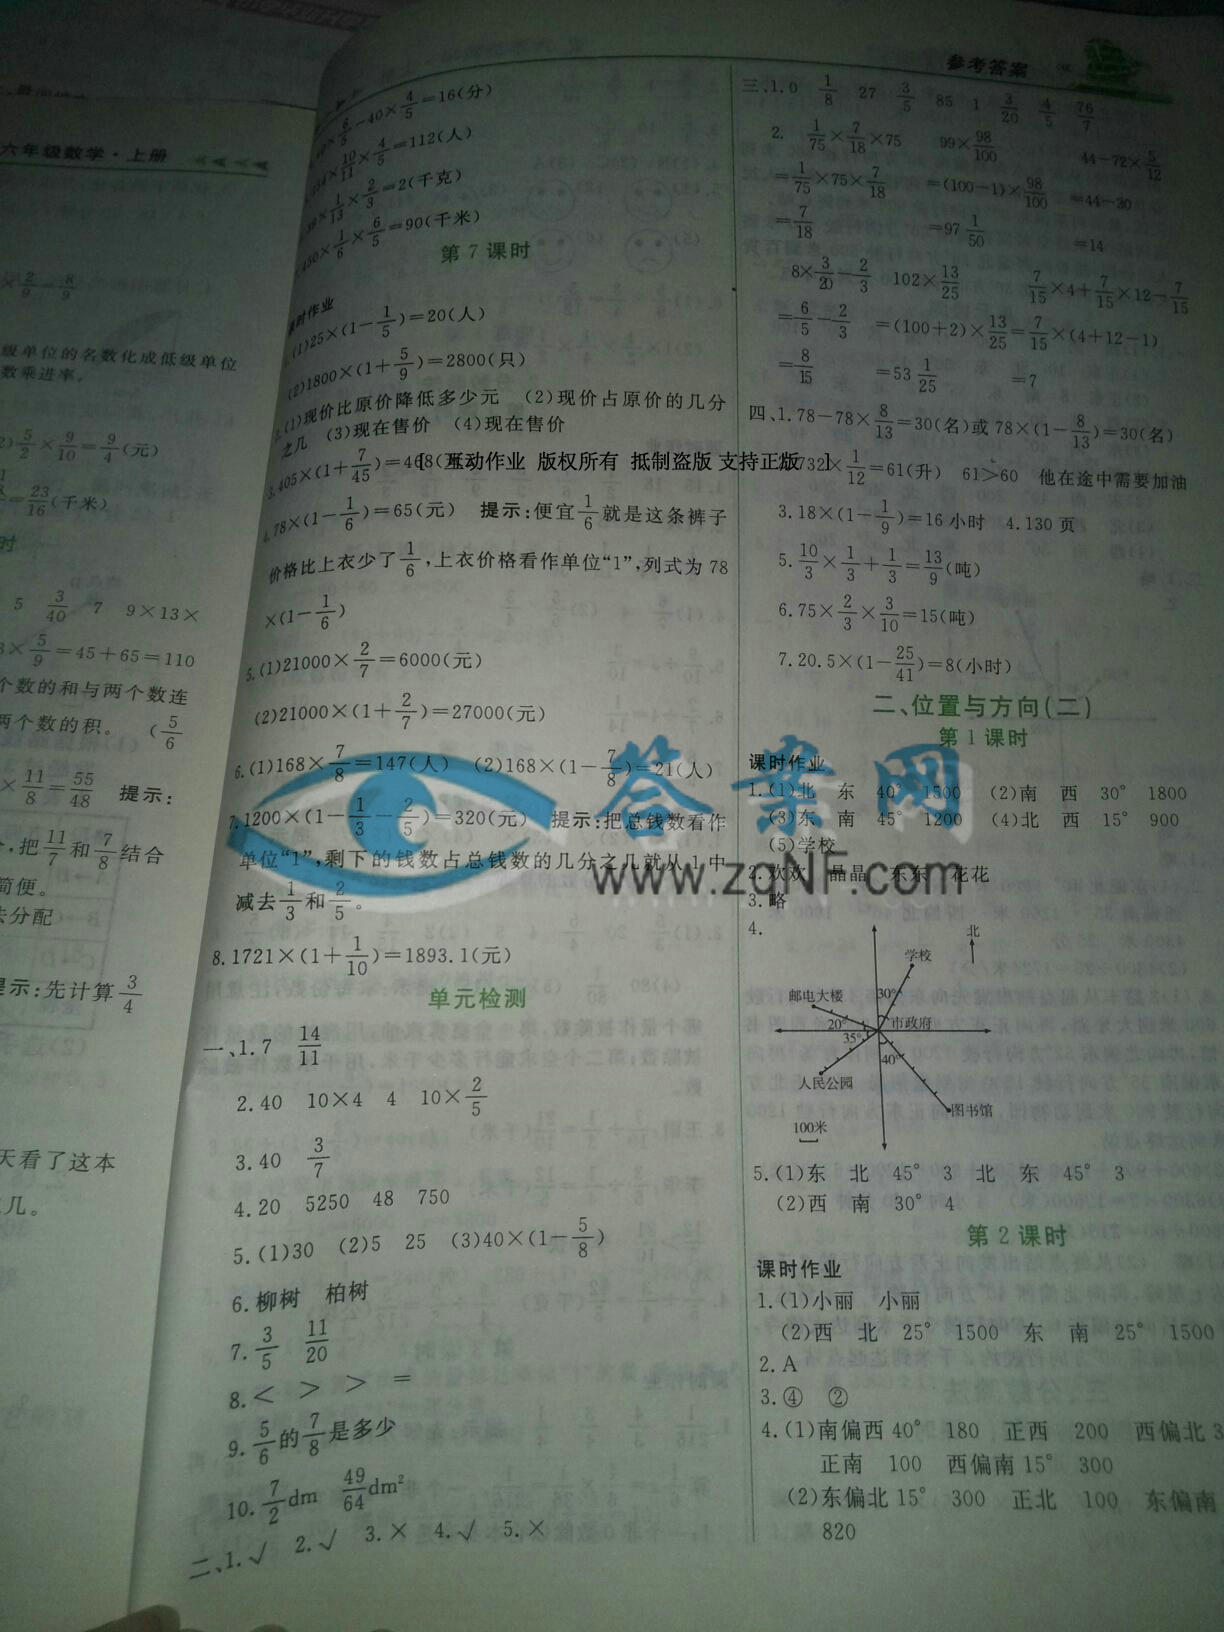 六年级数学·上册
×2/9=8/9
级单位的名数化成低级单位
数乘进率。
5/2×9/10=9/4(元)
=23/16(千米)
时
5 3/40 7 9×13×
×5/9=45+65=110
个数的和与两个数连
两个数的积。 (5/6
×11/8=55/48 提示:
,把11/7和7/8结合
简便。
法分配
提示:先计算3/4
天看了这本
几。
参考答案
×6/5-40×4/5=16(分)
×10/11×4/5=112(人)
39×1/13×2/3=2(千克)
450×1/6×6/5=90(千米)
第7课时
课时作业
1.(1)25×(1-1/5)=20(人)
(2)1800×(1+5/9)=2800(只)
2.(1)现价比原价降低多少元 (2)现价占原价的几分
之几 (3)现在售价 (4)现在售价
3.405×(1+7/45)=468
[ 互动作业 版权所有 抵制盗版 支持正版 ]
4.78×(1-1/6)=65(元) 提示:便宜1/6就是这条裤子
价格比上衣少了1/6,上衣价格看作单位“1”,列式为78
×(1-1/6)
5.(1)21000×2/7=6000(元)
(2)21000×(1+2/7)=27000(元)
6.(1)168×7/8=147(人) (2)168×(1-7/8)=21(人)
7.1200×(1-1/3-2/5)=320(元) 提示:把总钱数看作
单位“1”,剩下的钱数占总钱数的几分之几就从1中
减去1/3和2/5。
8.1721×(1+1/10)=1893.1(元)
单元检测
一、1.7 14/11
2.40 10×4 4 10×2/5
3.40 3/7
4.20 5250 48 750
5.(1)30 (2)5 25 (3)40×(1-5/8)
6.柳树 柏树
7.3/5 11/20
8.< > > =
9.5/6的7/8是多少
10.7/2dm 49/64dm²
二、1.√ 2.√ 3.× 4.√ 5.×
三、1.0 1/8 27 3/5 85 1 3/20 4/5 76/7
2. 1/75×7/18×75 99×98/100 44-72×5/12
=1/75×75×7/18 =(100-1)×98/100 =44-30
=7/18 =97 1/50 =14
8×3/20-2/3 102×13/25 7/15×4+7/15×12-7/15
=6/5-2/3 =(100+2)×13/25 =7/15×(4+12-1)
=8/15 =53 1/25 =7
四、1.78-78×8/13=30(名)或78×(1-8/13)=30(名)
2.732×1/12=61(升) 61>60 他在途中需要加油
3.18×(1-1/9)=16小时 4.130页
5.10/3×1/3+1/3=13/9(吨)
6.75×2/3×3/10=15(吨)
7.20.5×(1-25/41)=8(小时)
二、位置与方向(二)
第1课时
课时作业
1.(1)北 东 40° 1500 (2)南 西 30° 1800
(3)东 南 45° 1200 (4)北 西 15° 900
(5)学校
2.欢欢 晶晶 东东 花花
3.略
4.
北
学校
邮电大楼
30°
20°
市政府
35°
40°
人民公园
图书馆
100米
答案网
www.zqNF.com
5.(1)东 北 45° 3 北 东 45° 3
(2)西 南 30° 4
第2课时
课时作业
1.(1)小丽 小丽
(2)西 北 25° 1500 东 南 25° 1500
2.A
3.④ ②
4.(1)南偏西40° 180 正西 200 西偏北3
正南 100 西偏南15° 300
(2)东偏北15° 300 正北 100 东偏南
820